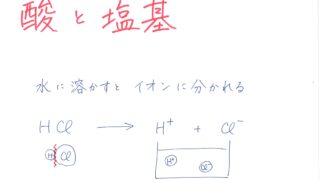 酸と塩基
水に溶かすとイオンに分かれる
HCl → H⁺ + Cl⁻
H Cl H⁺ Cl⁻